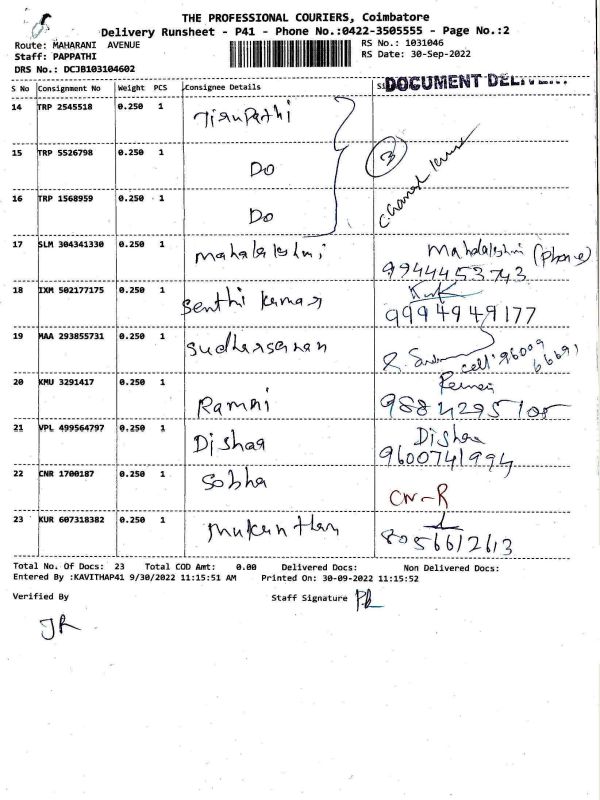 THE PROFESSIONAL COURIERS, Coimbatore
Delivery Runsheet - P41 - Phone No.:0422-3505555 - Page No.:2
Route: MAHARANI AVENUE
RS No.: 1031046
Staff: PAPPATHI
RS Date: 30-Sep-2022
DRS No.: DCJB103104602
DOCUMENT
S No Consignment No Weight PCS Consignee Details
14 TRP 2545518 0.250 1 Tirupathi
15 TRP 5526798 0.250 1 Do 3
16 TRP 1568959 0.250 1 Do
17 SLM 304341330 0.250 1 mahalakshmi Mahalakshmi (Phone)
9944453743
18 IXM 502177175 0.250 1 Senthi kumar
9994949177
19 MAA 293855731 0.250 1 Sudharsanan cell: 96009
66691
20 KMU 3291417 0.250 1 Ramni
21 VPL 499564797 0.250 1 Dishaa Dishaa
9600741994
22 CNR 1700187 0.250 1 Sobha CN-R
23 KUR 607318382 0.250 1 mukunthan
8056612613
Total No. Of Docs: 23 Total COD Amt: 0.00 Delivered Docs: Non Delivered Docs:
Entered By :KAVITHAP41 9/30/2022 11:15:51 AM Printed On: 30-09-2022 11:15:52
Verified By Staff Signature
JR